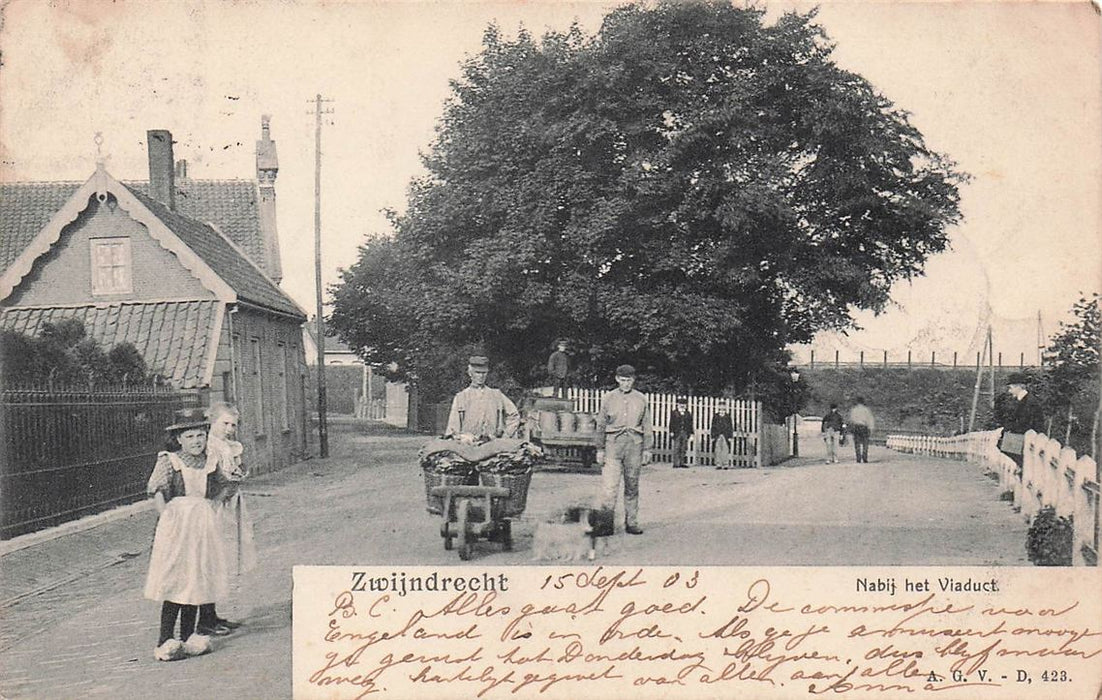 Zwijndrecht 15 Sept 03 Nabij het Viaduct.
B. C. Alles gaat goed. De commissie voor
Engeland is in orde. Als ge je amuseert moogt
ge gerust tot Donderdag blijven, dus blijf maar
weg. hartelijk gegroet van allen, aan allen
A. G. V. - D, 423.